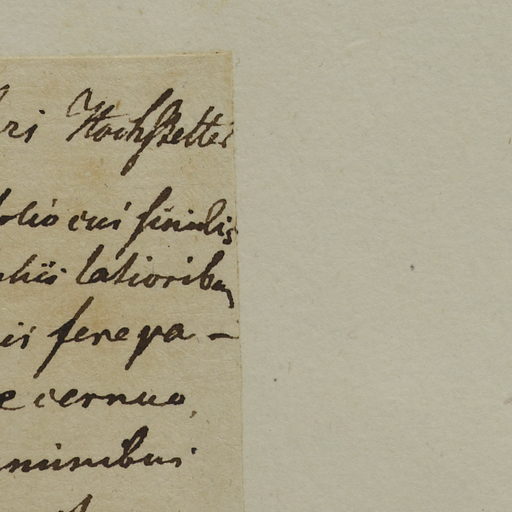 ri Hochstetter
olio cui similis
oliis latioribus
is fere pa-
e cernuo,
minibus